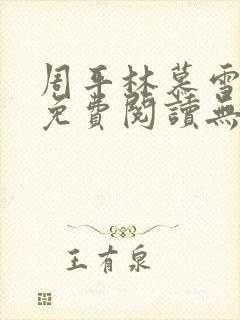 周平林慕雪
免費閱讀無
王有泉